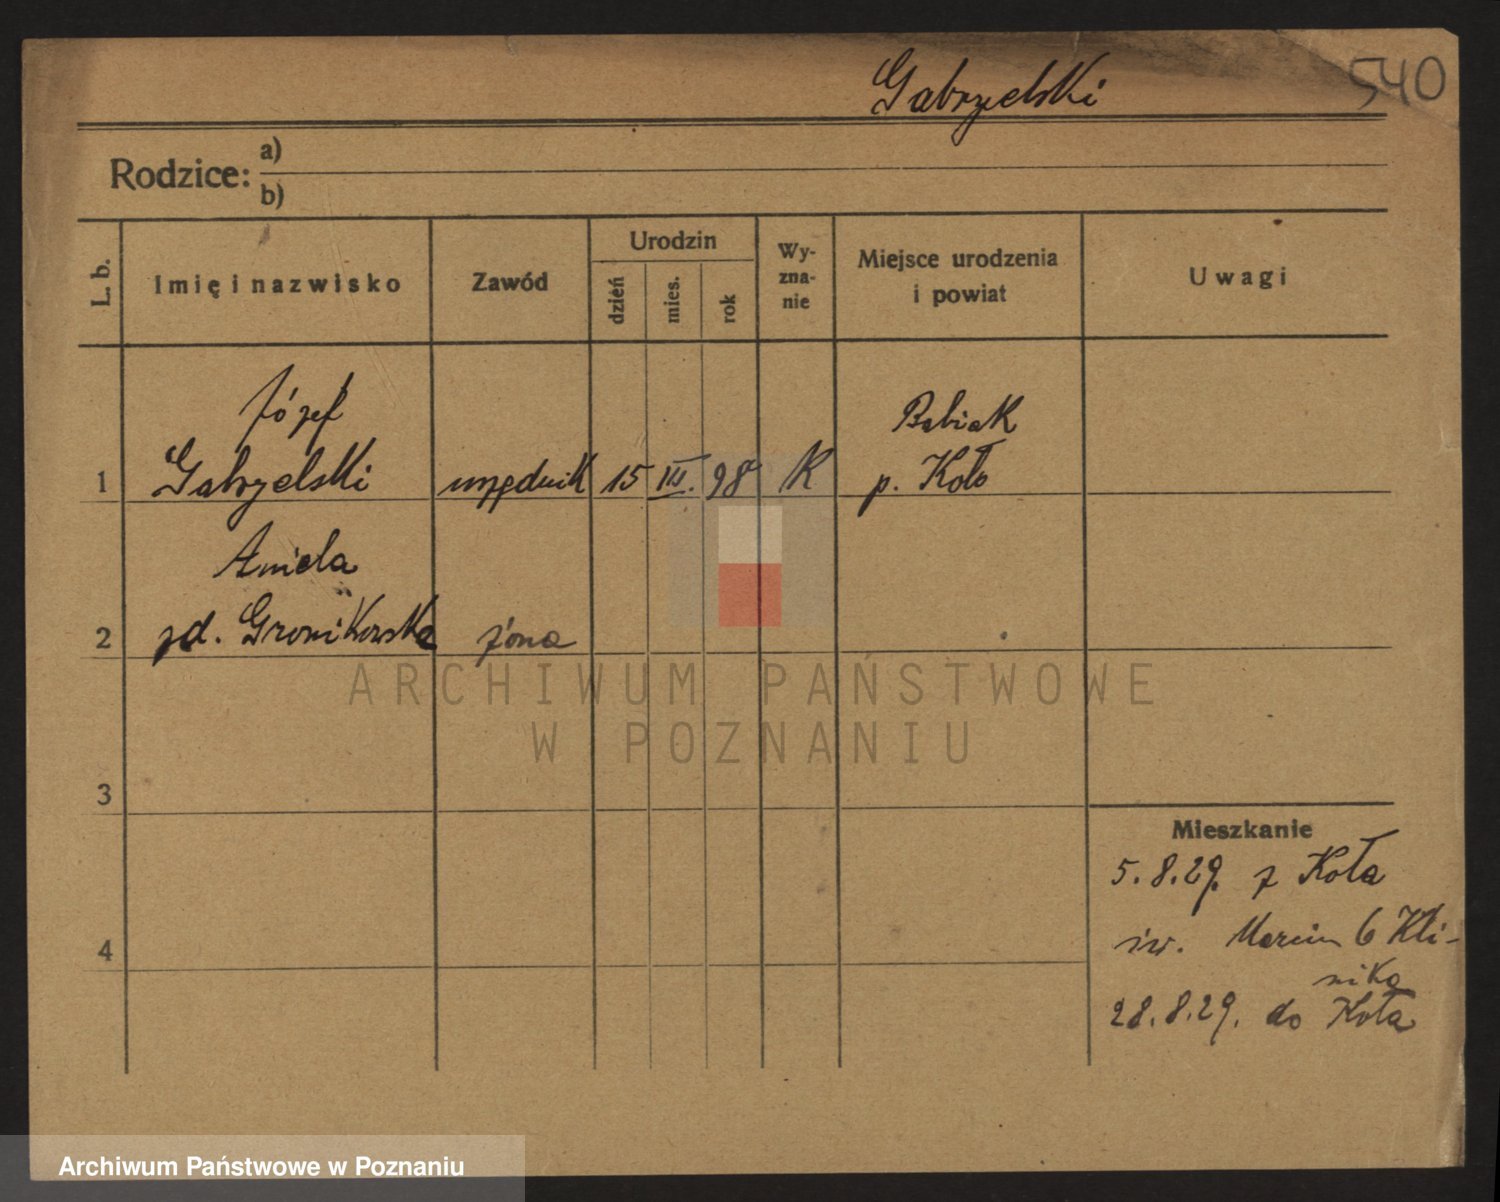 Gabryelski
540
Rodzice:
a)
b)
L. b.
Imię i nazwisko
Zawód
Urodzin
dzień
mies.
rok
Wy-
zna-
nie
Miejsce urodzenia
i powiat
Uwagi
1
Józef
Gabryelski
urzędnik
15
III.
98
K
Babiak
p. Koło
2
Aniela
zd. Gronikowska
żona
3
4
Mieszkanie
5.8.29. z Koła
św. Marcin 6 Kli-
nika
28.8.29. do Koła
ARCHIWUM PAŃSTWOWE
W POZNANIU
Archiwum Państwowe w Poznaniu